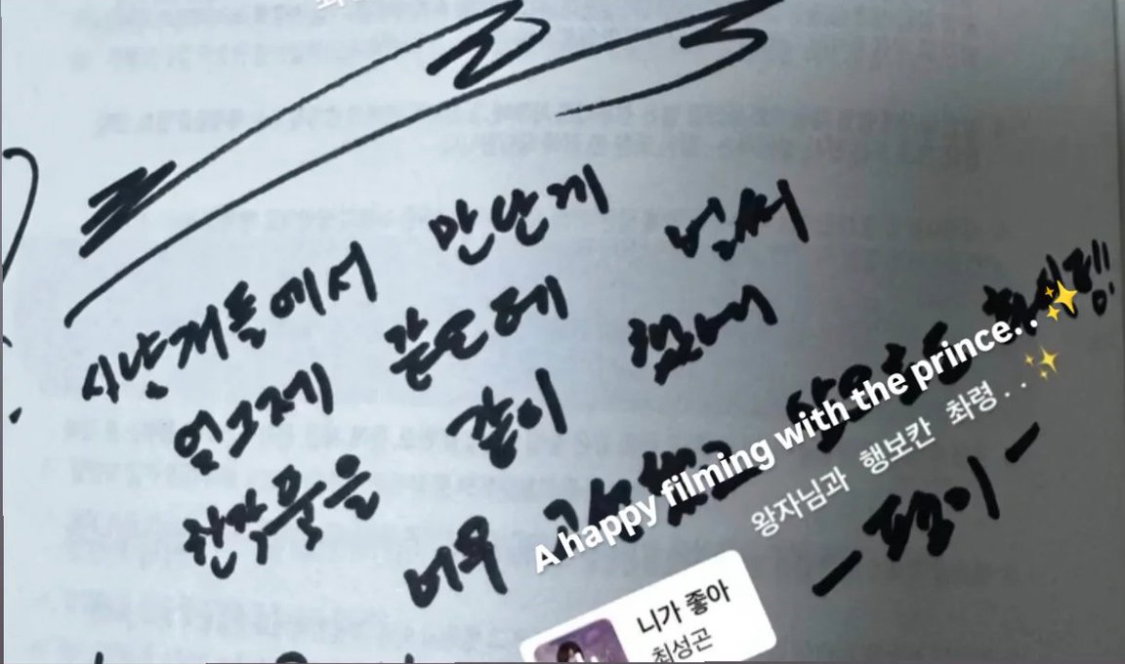 사냥개들에서 만난게
엊그제 같은데 벌써
한작품을 같이 했네
너무 고생했고
A happy filming with the prince. . ✨
왕자님과 행보칸 촤령 . . ✨
니가 좋아
최성곤